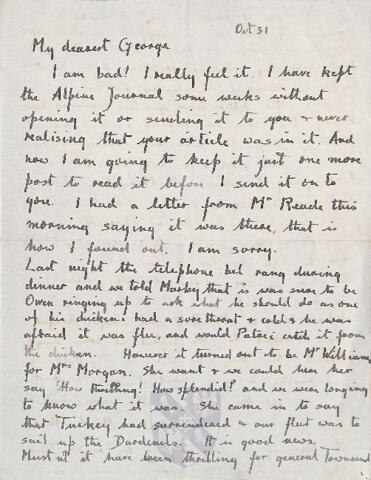 Oct 31
My dearest George
I am bad! I really feel it. I have kept
the Alpine Journal some weeks without
opening it or sending it to you & never
realising that your article was in it. And
now I am going to keep it just one more
post to read it before I send it on to
you. I had a letter from Mr Reade this
morning saying it was there, that is
how I found out. I am sorry.
Last night the telephone bel rang during
dinner and we told Marby that is was sure to be
Owen ringing up to ask what he should do as one
of his chickens had a sore throat & cold & he was
afraid it was flue, and would catch it from
the chicken. However it turned out to be Mr Williams
for Mrs Morgan. She went & we could hear her
say How thrilling! How splendid? and we were longing
to know what it was. She came in to say
that Turkey had surrendered & our fleet was to
sail up the Dardenels. It is good news.
Mustn't it have been thrilling for general Townsend